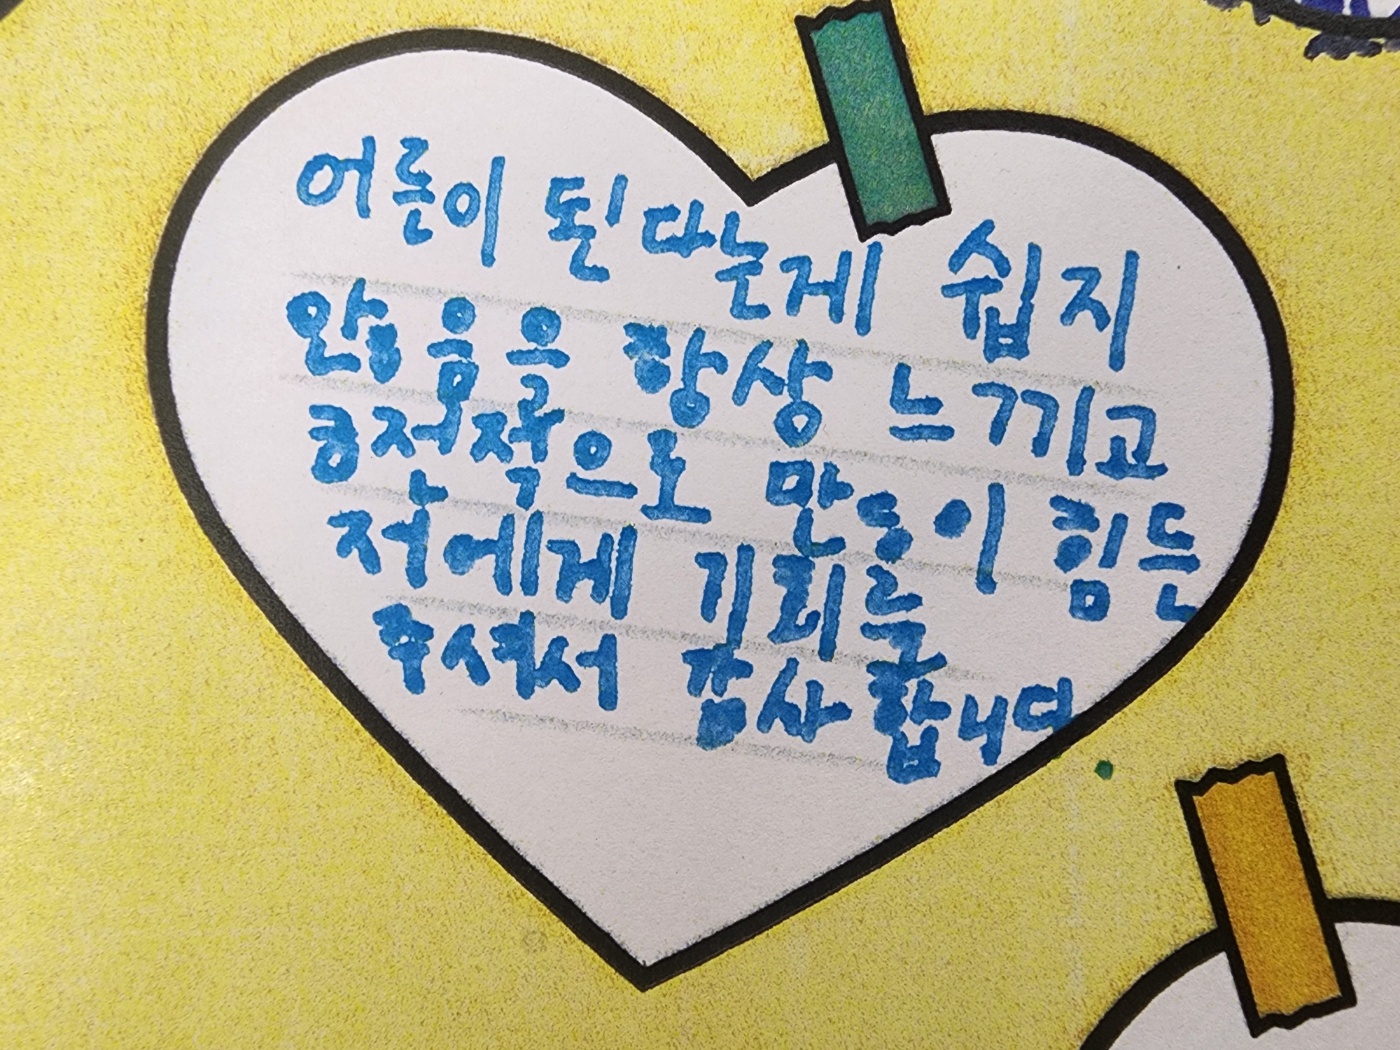 어른이 된다는게 쉽지
않음을 항상 느끼고
금전적으로 많이 힘든
저에게 기회를
주셔서 감사합니다